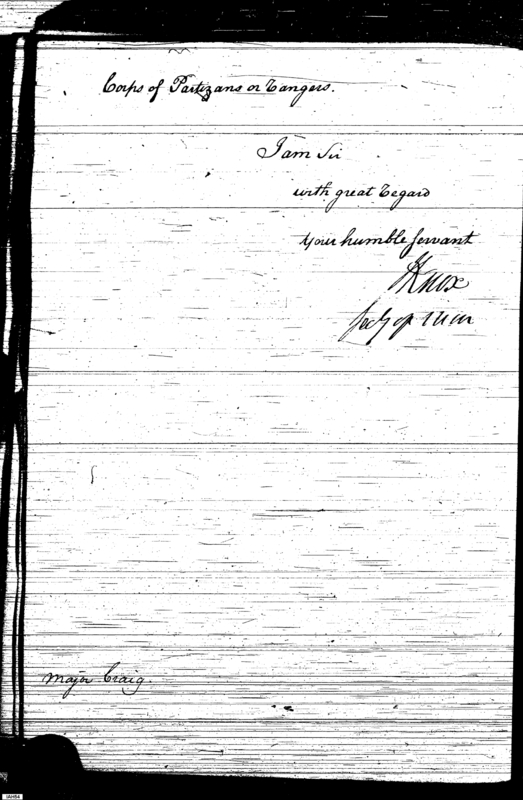 Corps of Partizans or Rangers.
I am Sir
with great regard
your humble servant
HKnox
Secy of War
Major Craig.
IAH64